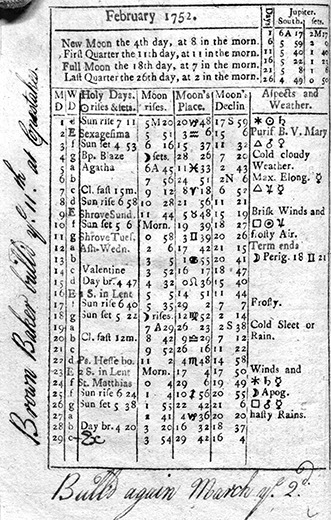 February 1752.
Days Jupiter.
South. sets.
1 6A 17 2M17
New Moon the 4th day, at 8 in the morn. 6 5 59 2 0
First Quarter the 11th day, at 11 in the morn. 11 5 40 1
Full Moon the 18th day, at 7 in the morn. 16 5 22 1
Last Quarter the 26th day, at 2 in the morn. 21 5 8 1
26 4 49 0 50
M D W D Holy Days. ☉ rises & sets. Moon rises. Moon's Place. Moon's Declin Aspects and Weather.
1 e Sun rise 7 11 5M20 20♑48 17 S 59 ☌ ☉ ♄
2 E Sexagesima 5 51 Purif B. V. Mary
3 f Sun set 4 53 6 15 11 △ ♂ ♀
4 g Bp. Blaze ☽ sets. 28 26 7 20 Cold cloudy
5 a Agatha 6A 45 11♓33 2 43 Weather.
6 b 7 56 24 51 2N 6 Max. Elong. ☿
7 c Cl. fast 15m. 9 12 6 52
8 d Sun rise 6 58 10 28 21 56 11 21
9 E Shrove Sund. 11 44 5♉48 15 19 Brisk Winds and
10 f Sun set 5 6 Morn. 19 39 18 27
11 g Shrove Tues. 0 58 3♊39 20 26 frosty Air.
12 a Ash-Wedn. 2 6 17 42 21 15 Term ends
13 b 3 5 20 41 ☽ Perig. 18 ♊ 21
14 c Valentine 3 52 16 17 18 47
15 d Day br. 4 47 4 32 0♌36 15 40
16 E 1 S. in Lent 5 5 14 51 11 44
17 f Sun rise 6 40 5 35 29 2 7 7 Frosty.
18 g Sun set 5 22 ☽ rises. 12♍52 2 14
19 a 7A 29 26 23 2 S 38 Cold Sleet or
20 b Cl. fast 12m. 8 42 9♎29 7 12 Rain.
21 c 9 52 26 16 11 22
22 d Ps. Hesse bo. 11 2 4♏48 14 58
23 E 2 S. in Lent Morn. 17 4 17 50 Winds and
24 f St. Matthias 0 4 29 6 19 49
25 f Sun rise 6 24 1 4 10♐56 20 55 ☽ Apog.
26 g Sun set 5 38 1 55 22 42 21 6
27 a 2 41 4♑36 20 20 hasty Rains.
28 b Day br. 4 20 3 20 16 32 18 37
29 3 54 29 42 16 4
Brown Baken bull'd ye. 11th. at
Bull'd again March ye. 2d.